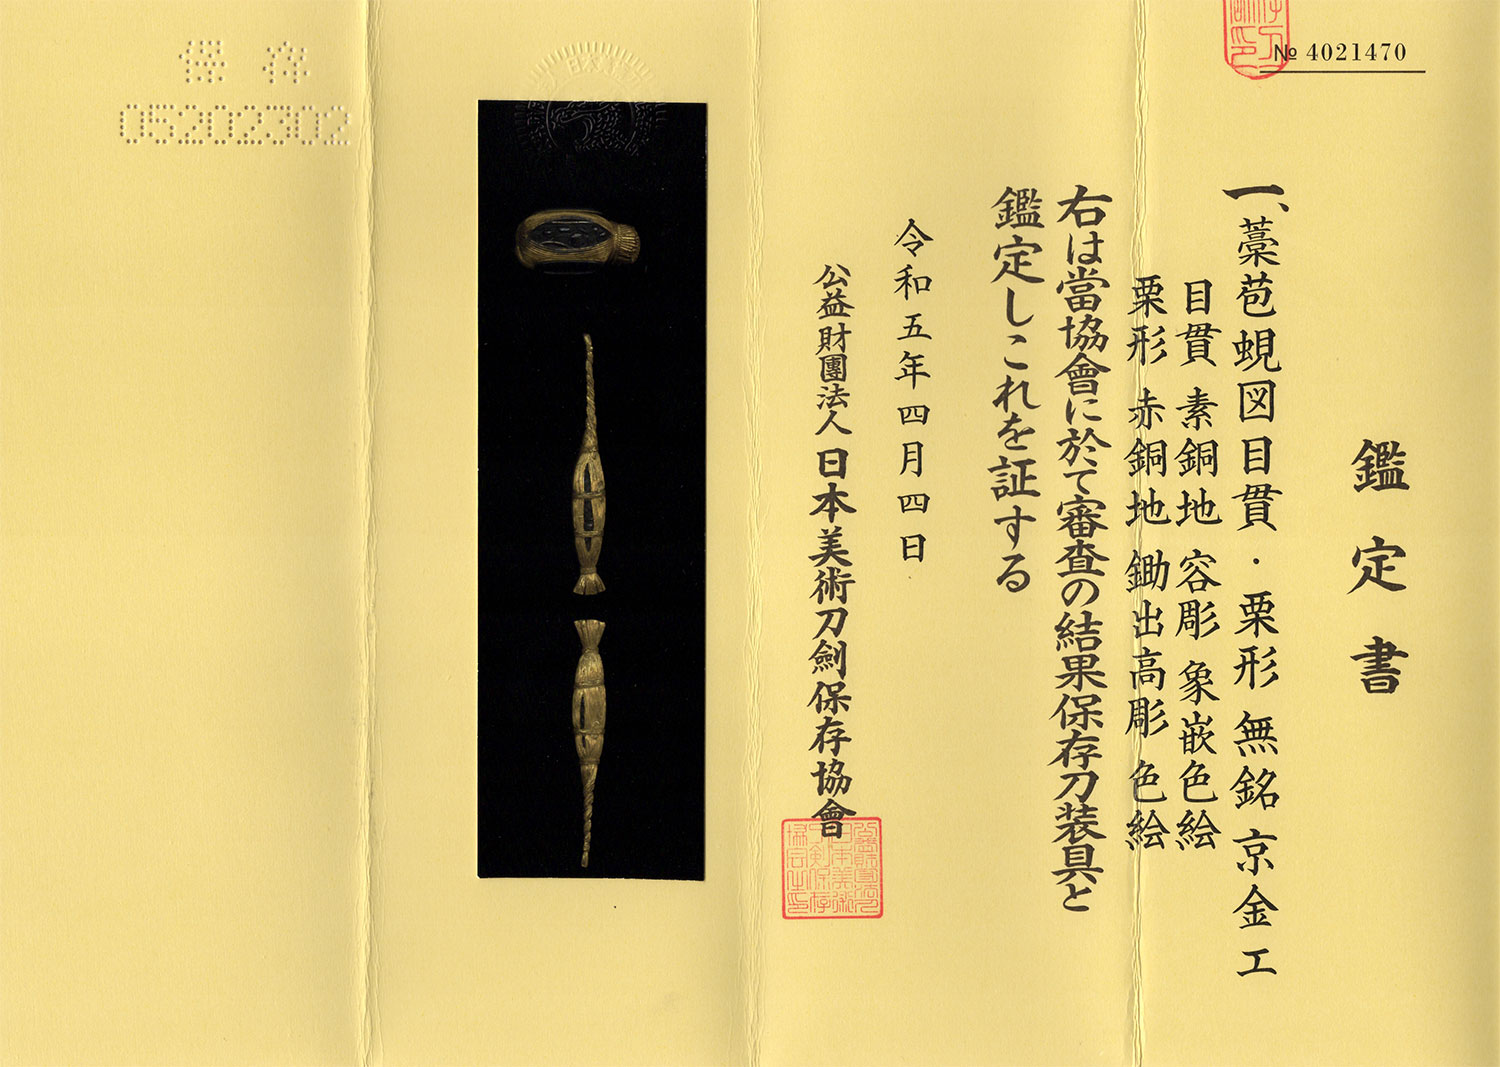 № 4021470
鑑定書
一、藁苞蜆図目貫・栗形 無銘 京金工
目貫 素銅地 容彫 象嵌色絵
栗形 赤銅地 鋤出高彫 色絵
右は當協會に於て審査の結果保存刀装具と
鑑定しこれを証する
令和五年四月四日
公益財團法人 日本美術刀劍保存協會
保存
05202302